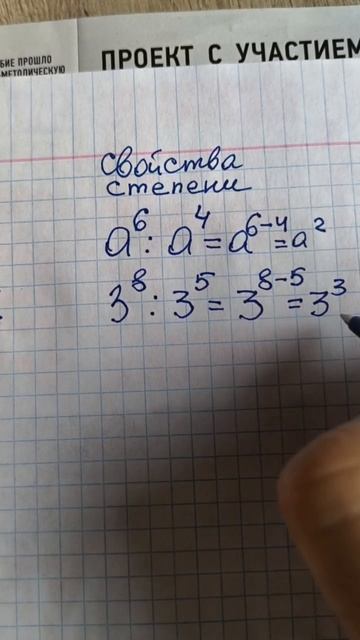 БИЕ ПРОШЛО
МЕТОДИЧЕСКУЮ
ПРОЕКТ С УЧАСТИЕМ
Свойства
степени
a⁶ : a⁴ = a⁶⁻⁴ = a²
3⁸ : 3⁵ = 3⁸⁻⁵ = 3³